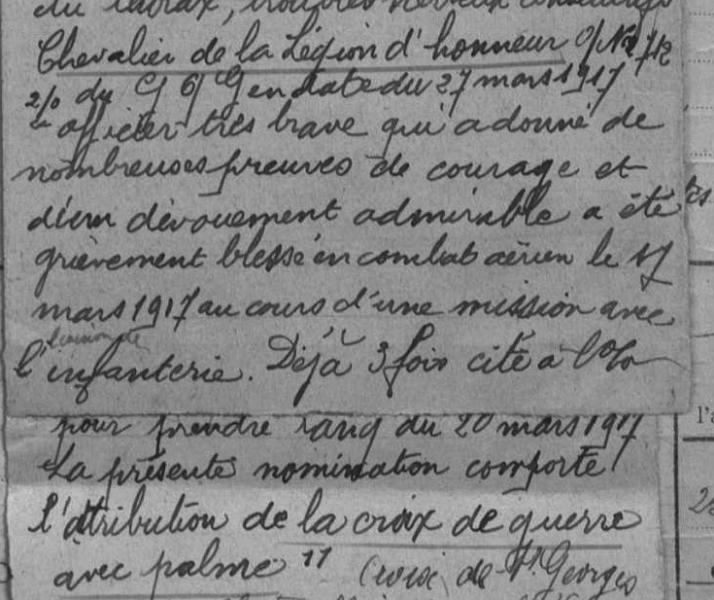 du thorax, troubles nerveux consécutifs
Chevalier de la Légion d'honneur O/No 712
du G Q G en date du 27 mars 1917
"officier très brave qui a donné de
nombreuses preuves de courage et
d'un dévouement admirable a été
grièvement blessé en combat aérien le 17
mars 1917 au cours d'une mission avec
l'infanterie. Déjà 3 fois cité à l'o/o
pour prendre rang du 20 mars 1917
La présente nomination comporte
l'attribution de la croix de guerre
avec palme" Croix de St Georges